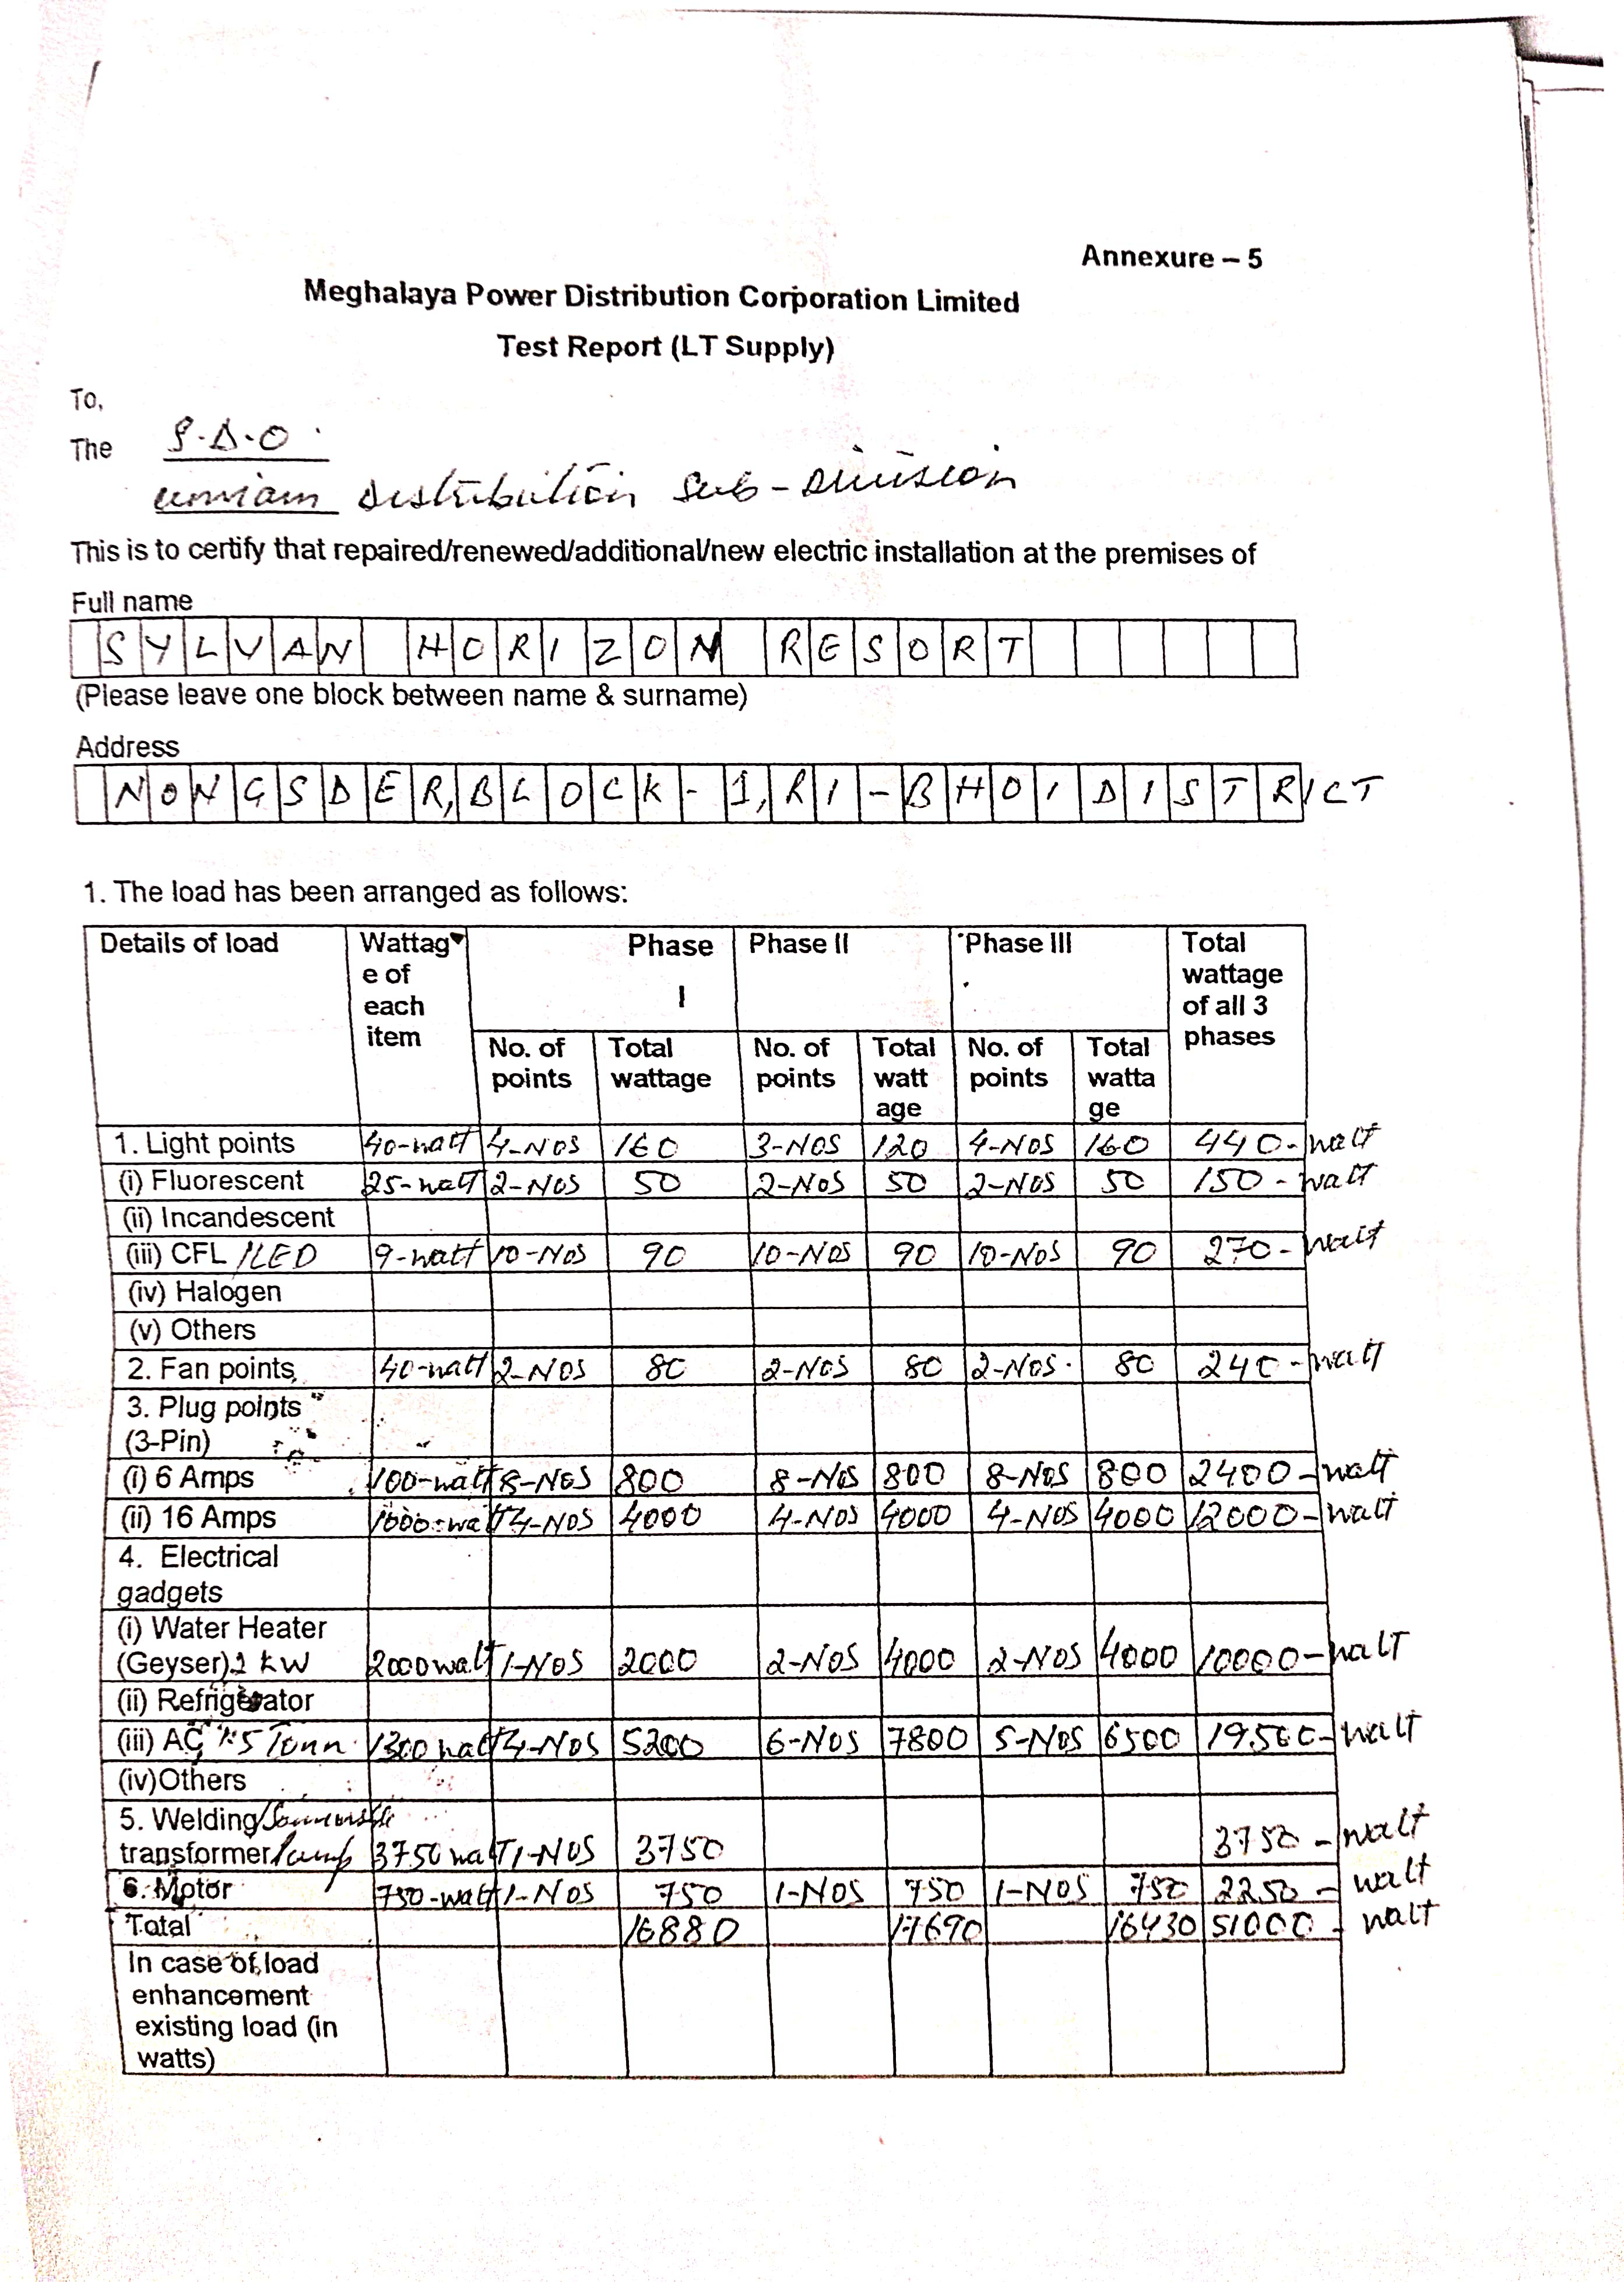 Annexure – 5
Meghalaya Power Distribution Corporation Limited
Test Report (LT Supply)
To,
The S.D.O.
umiam Distribution Sub-Division
This is to certify that repaired/renewed/additional/new electric installation at the premises of
Full name
SYLVAN HORIZON RESORT
(Please leave one block between name & surname)
Address
NONGSDER, BLOCK-1, RI-BHOI DISTRICT
1. The load has been arranged as follows:
Details of load Wattag e of each item Phase I Phase II Phase III Total wattage of all 3 phases
No. of points Total wattage No. of points Total watt age No. of points Total watta ge
1. Light points 40-watt 4-NOS 160 3-NOS 120 4-NOS 160 440-watt
(i) Fluorescent 25-watt 2-NOS 50 2-NOS 50 2-NOS 50 150-watt
(ii) Incandescent
(iii) CFL /LED 9-watt 10-NOS 90 10-NOS 90 10-NOS 90 270-watt
(iv) Halogen
(v) Others
2. Fan points 40-watt 2-NOS 80 2-NOS 80 2-NOS. 80 240-watt
3. Plug points
(3-Pin)
(i) 6 Amps 100-watt 8-NOS 800 8-NOS 800 8-NOS 800 2400-watt
(ii) 16 Amps 1000-watt 4-NOS 4000 4-NOS 4000 4-NOS 4000 12000-watt
4. Electrical
gadgets
(i) Water Heater
(Geyser) KW 2000 watt 1-NOS 2000 2-NOS 4000 2-NOS 4000 10000-watt
(ii) Refrigerator
(iii) AC 1.5 Tonn. 1300 watt 4-NOS 5200 6-NOS 7800 5-NOS 6500 19500-watt
(iv)Others
5. Welding/
transformer/Pump 3750 watt 1-NOS 3750 3750-watt
6. Motor 750-watt 1-NOS 750 1-NOS 750 1-NOS 750 2250-watt
Total 16880 17690 16430 51000-watt
In case of load
enhancement
existing load (in
watts)